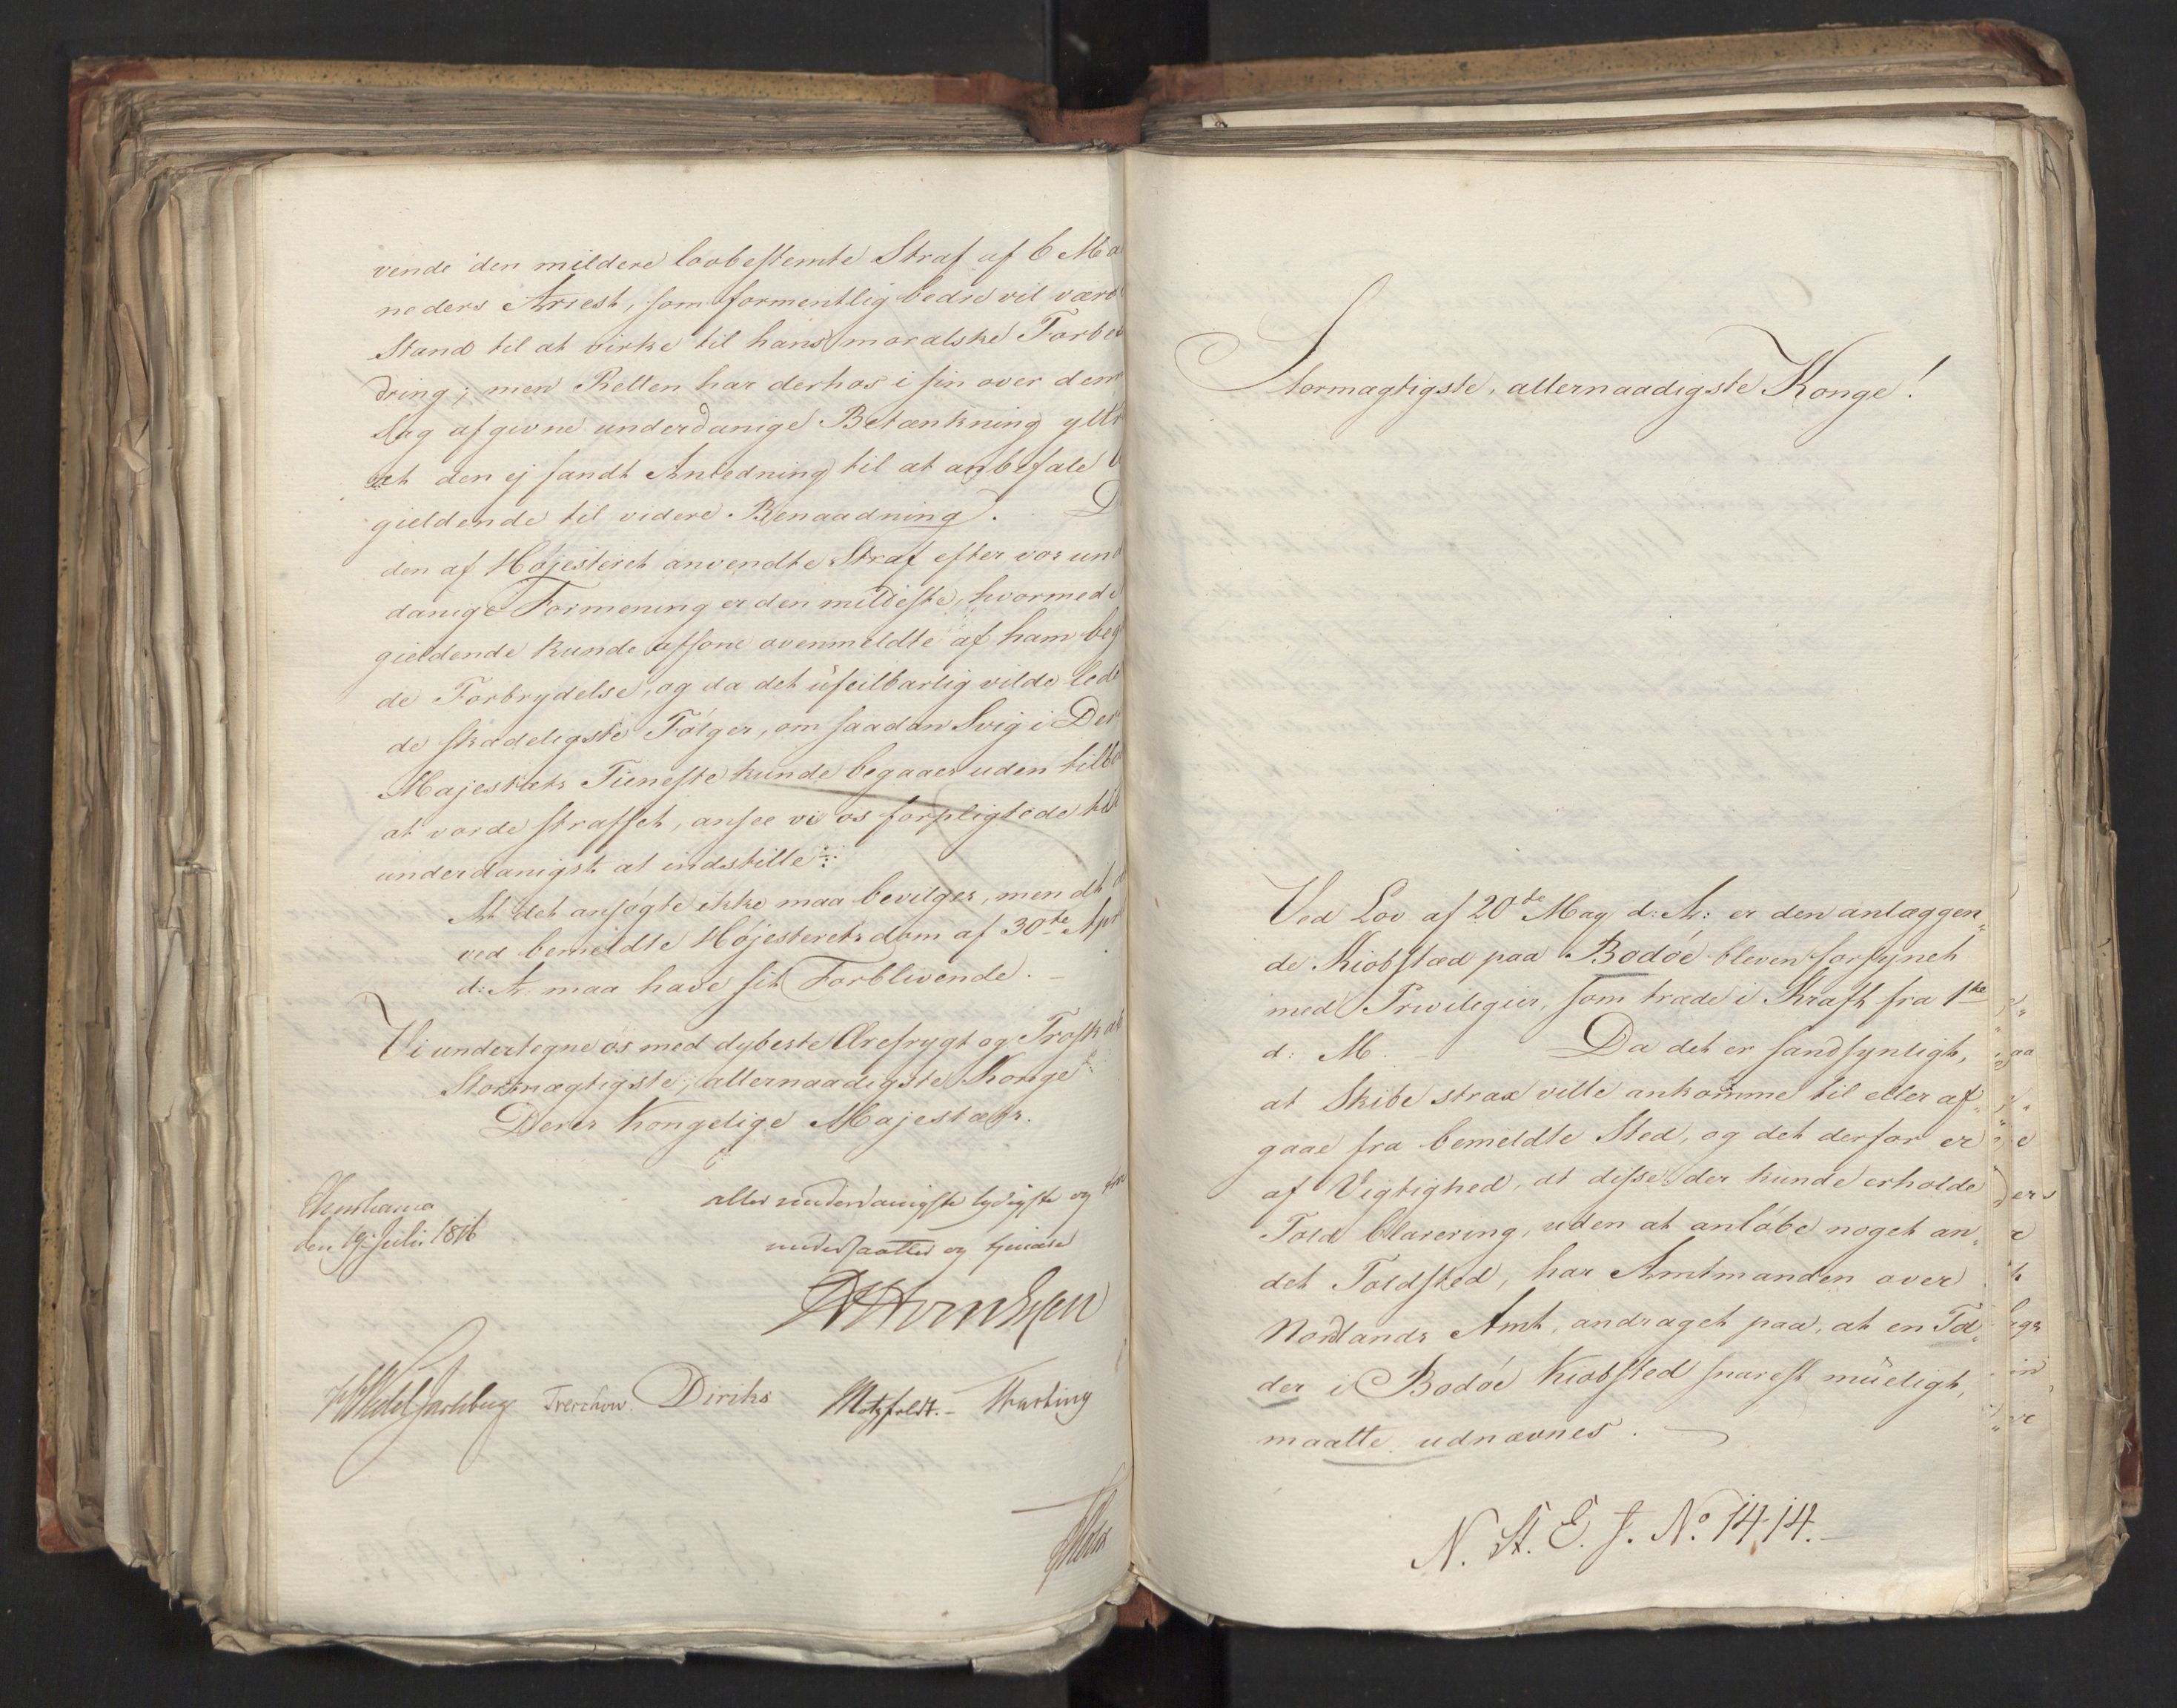 vende den mildere lovbestemte Straf af 6 Ma
neders Arrest, som formentlig bedre vil være
Stand til at virke til hans moralske Forbe
dring; men Retten har derhos i sin over denn
Sag afgivne underdanige Betænkning yttr
at den ej fandt Anledning til at anbefale
gieldende til videre Benaadning. D
den af Højesteret anvendte Straf efter vor und
danige Formening er den mildeste, hvormed
gieldende kunde afsone ovenmeldte af ham beg
de Forbrydelse, og da det ufeilbarlig vilde lede
de skadeligste Følger, om saadan Svig i Der
Majestæts Tieneste kunde begaaes uden tilbø
at vorde straffet, ansee vi os forpligtede til
underdanigst at indstille:
At det ansøgte ikke maa bevilges, men at
ved bemeldte Højesteretsdom af 30te Apr
d: A: maa have sit Forblivende. -
Vi undertegne os med dybeste Ærefrygt og Troskab
Stormægtigste, allernaadigste Konge
Deres Kongelige Majestæts.
Christiania
den 19 Julii 1816
aller underdanigste lydigste og
undersaatter og tjenere
Wedel Jarlsberg Treschow Diriks Motzfeldt. -
Stormægtigste, allernaadigste Konge!
Ved Lov af 20de May d: A: er den anlæggen„
de Kiøbstæd paa Bodøe bleven forsynet
med Privilegier, som træde i Kraft fra 1ste
d: M. - Da det er sandsynligt,
at Skibe strax ville ankomme til eller af„
gaae fra bemeldte Sted, og det derfor er
af Vigtighed, at disse der kunde erholde
Told Clarering, uden at anløbe noget an„
det Toldsted, har Amtmanden over
Nordlands Amt, andraget paa, at en Tol„
der i Bodøe Kiøbsted snarest mueligt,
maatte udnævnes.
N. St. E. J. No 1414. -